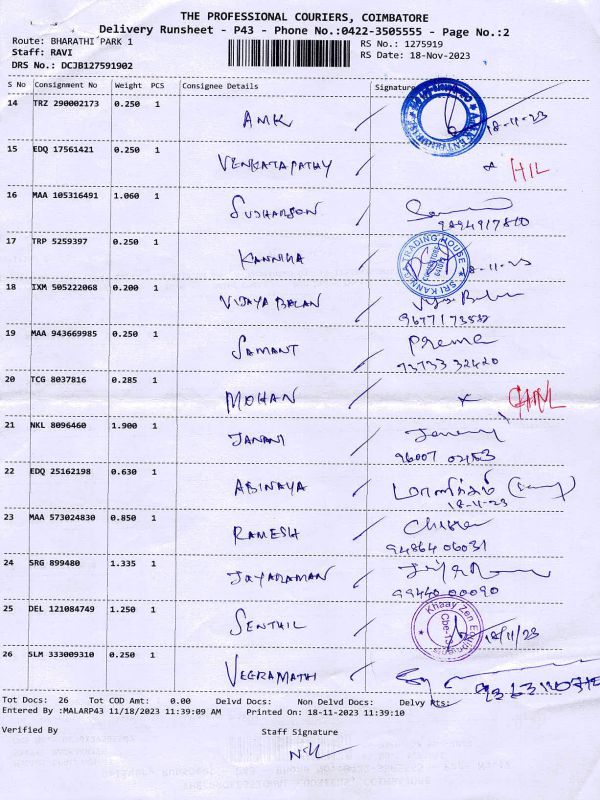 THE PROFESSIONAL COURIERS, COIMBATORE
Delivery Runsheet - P43 - Phone No.:0422-3505555 - Page No.:2
Route: BHARATHI PARK 1 RS No.: 1275919
Staff: RAVI RS Date: 18-Nov-2023
DRS No.: DCJB127591902
S No Consignment No Weight PCS Consignee Details Signature
14 TRZ 290002173 0.250 1 AMK 18-11-23
15 EDQ 17561421 0.250 1 VENKATAPATHY
16 MAA 105316491 1.060 1 SUDHARSON
9894917810
17 TRP 5259397 0.250 1 KANNIKA SRI KANNIKA TRADING HOUSE 18-11-23
18 IXM 505222068 0.200 1 VIJAYA BALAN
19 MAA 943669985 0.250 1 SAMANT Prema
73733 32420
20 TCG 8037816 0.285 1 MOHAN
21 NKL 8096460 1.900 1 JANANI
22 EDQ 25162198 0.630 1 ABINAYA
18-11-23
23 MAA 573024830 0.850 1 RAMESH
94864 06031
24 SRG 899480 1.335 1 JAYARAMAN
99440 00090
25 DEL 121084749 1.250 1 SENTHIL 18/11/23
26 SLM 333009310 0.250 1 VEERAMATHI
Tot Docs: 26 Tot COD Amt: 0.00 Delvd Docs: Non Delvd Docs: Delvy Pts:
Entered By :MALARP43 11/18/2023 11:39:09 AM Printed On: 18-11-2023 11:39:10
Verified By Staff Signature